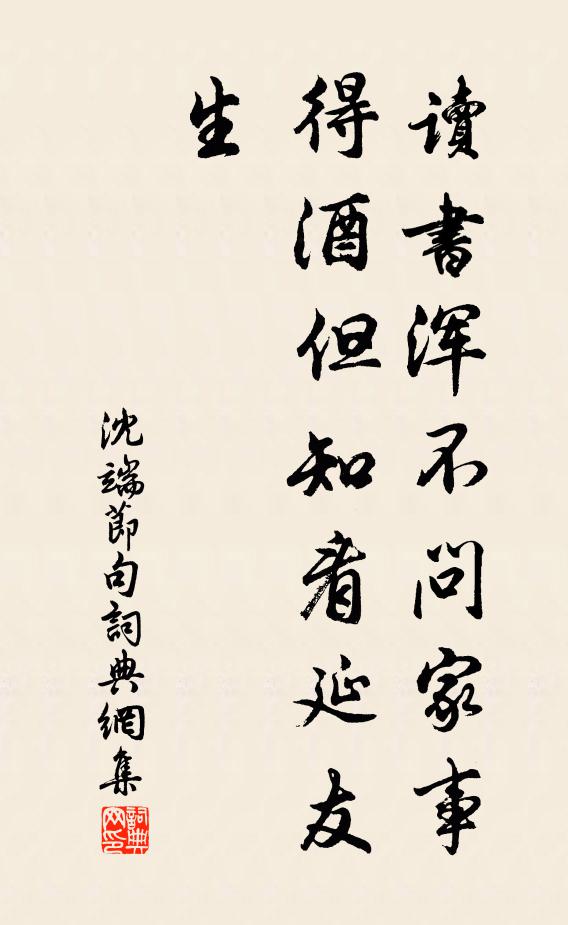 讀書渾不問家事
得酒但知肴延友
生
沈端節句詞典網集
詞典
网印